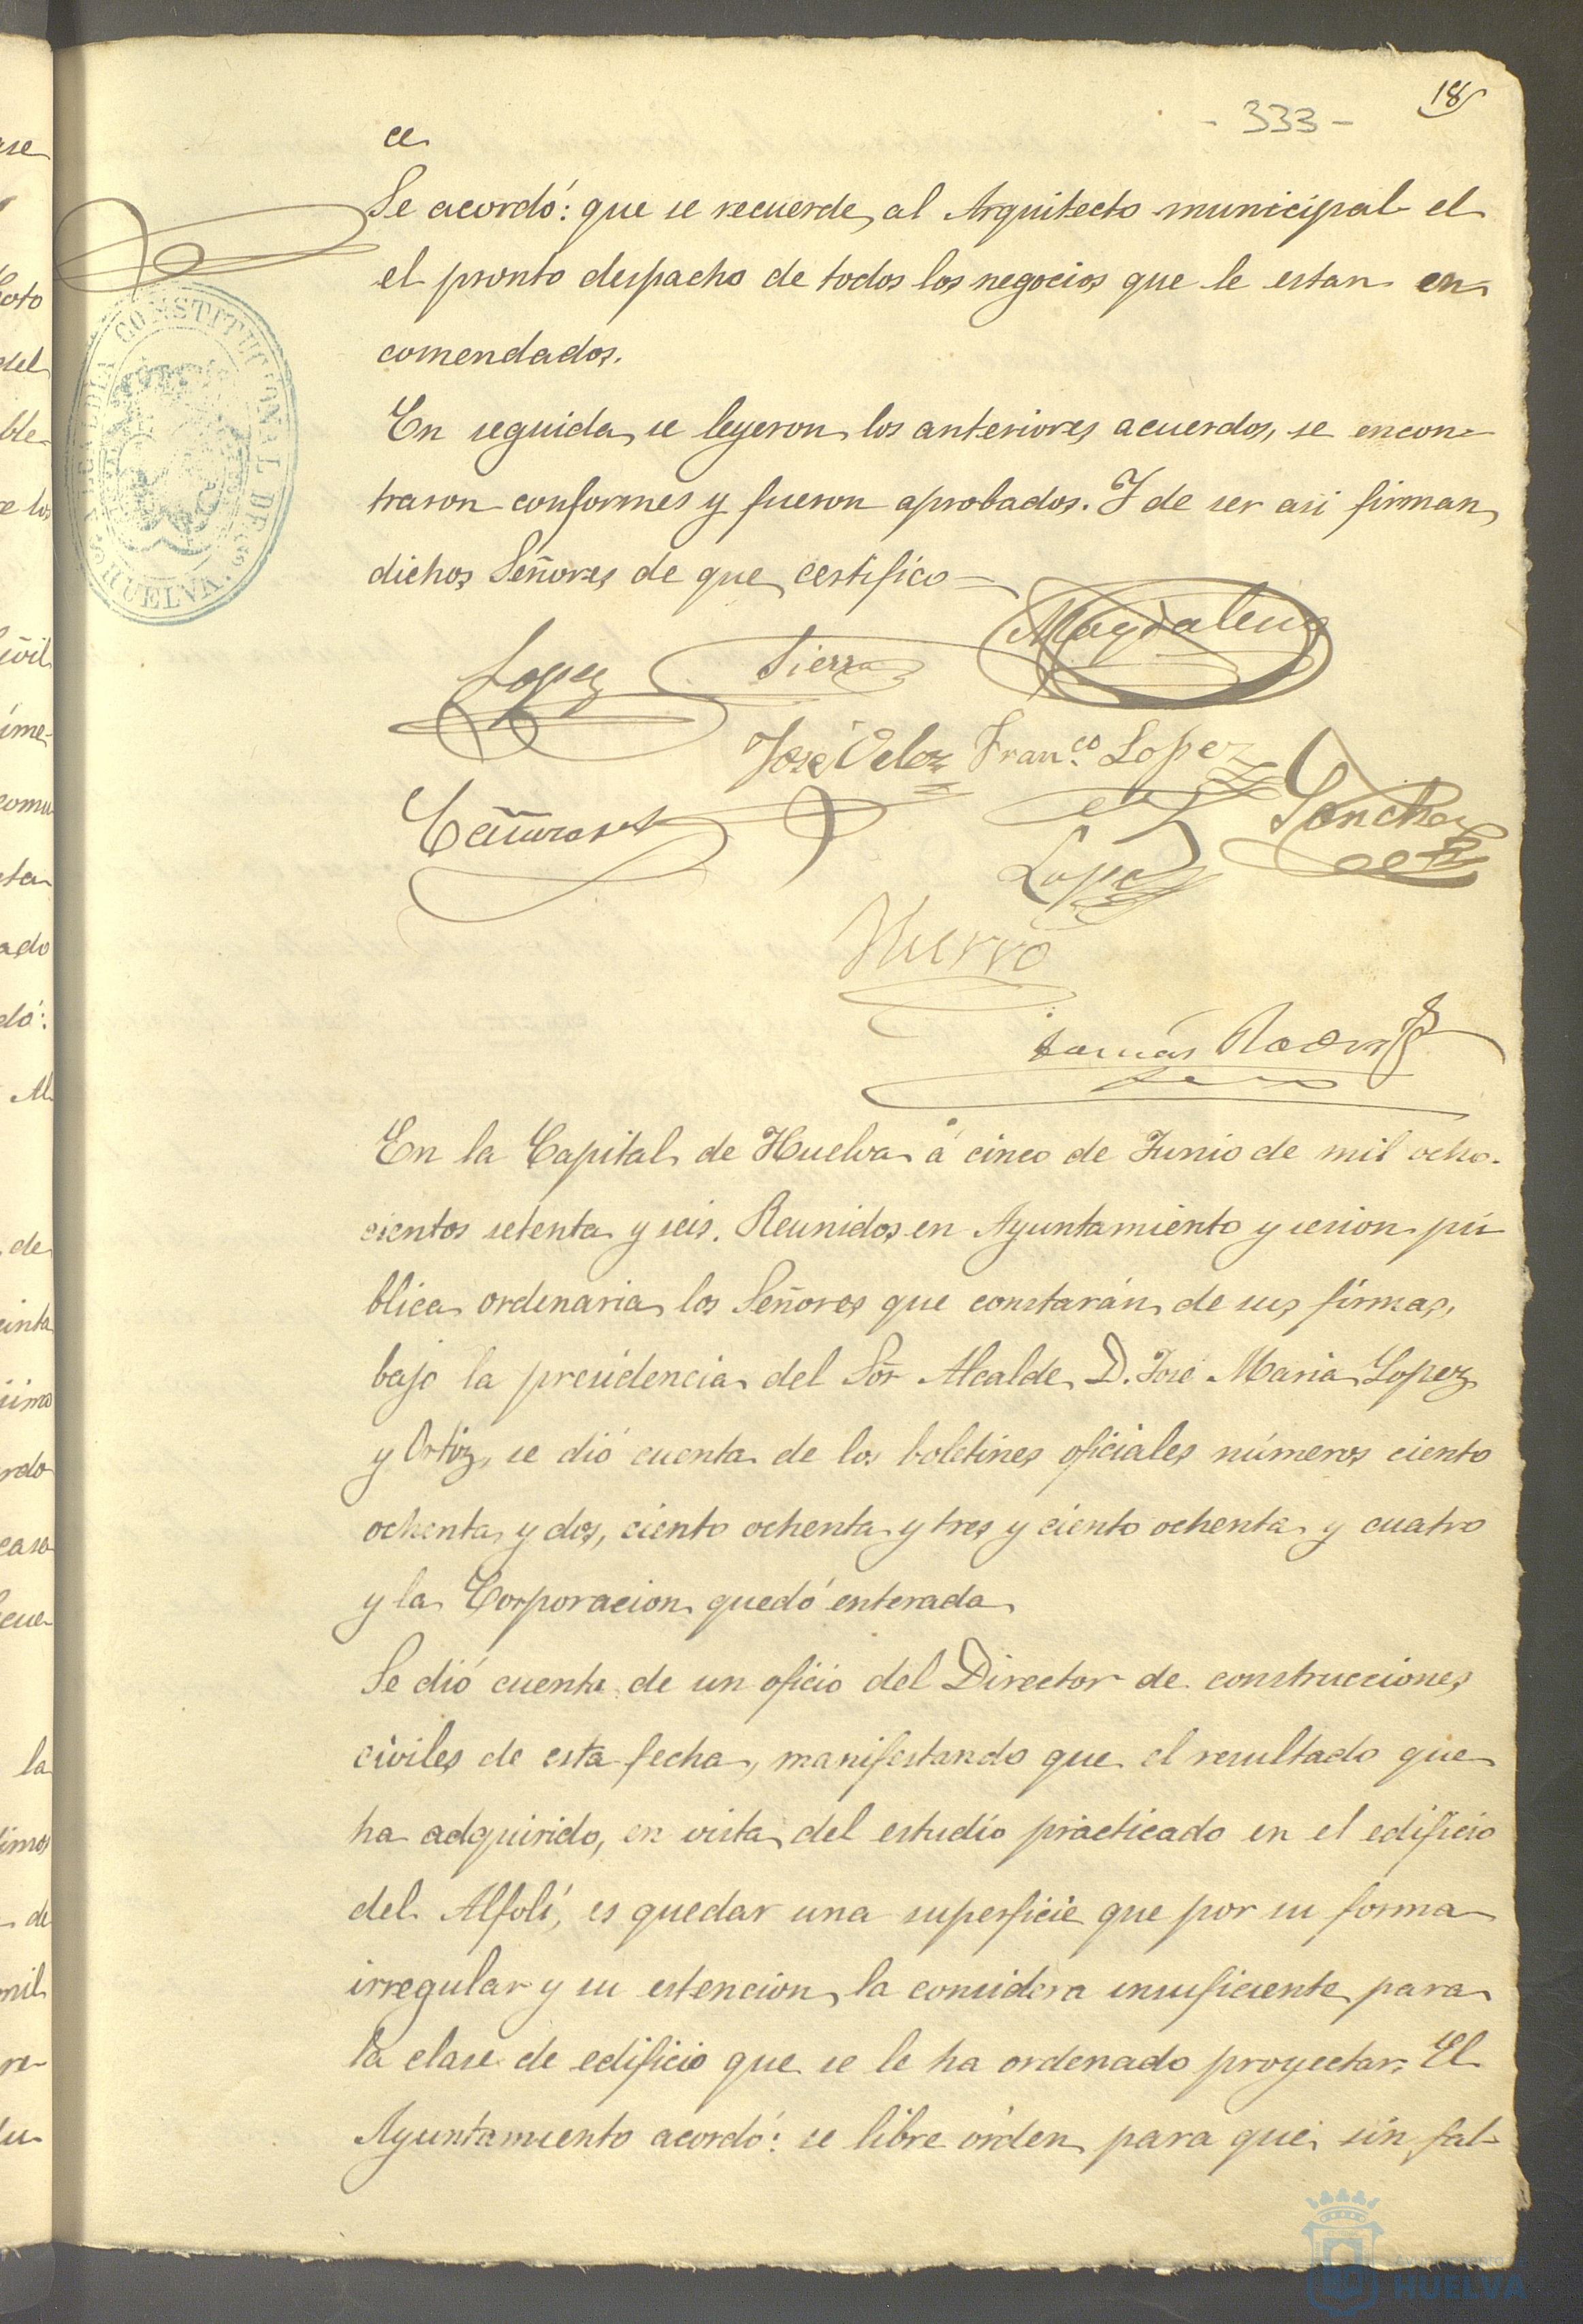 18
- 333 -
ce
Se acordó: que se recuerde al Arquitecto municipal el
el pronto despacho de todos los negocios que le estan en
comendados.
En seguida se leyeron los anteriores acuerdos, se encon-
traron conformes y fueron aprobados. Y de ser asi firman
dichos Señores de que certifico
Lopez Sierra Magdalena
José Veloz Fran.co Lopez
Sanchez
Lopez
Tomás Rodrig
En la Capital de Huelva á cinco de Junio de mil ocho-
cientos setenta y seis. Reunidos en Ayuntamiento y sesion pú
blica ordenaria los Señores que constarán de sus firmas,
bajo la presidencia del Sõr Alcalde D. José Maria Lopez
y Ortiz, se dió cuenta de los boletines oficiales números ciento
ochenta y dos, ciento ochenta y tres y ciento ochenta y cuatro
y la Corporacion quedó enterada
Se dió cuenta de un oficio del Director de construcciones
civiles de esta fecha, manifestando que el resultado que
ha adquirido, en vista del estudio practicado en el edificio
del Alfolí, es quedar una superficie que por su forma
irregular y su estencion la considera insuficiente para
la clase de edificio que se le ha ordenado proyectar. El
Ayuntamiento acordó: se libre órden para que sin fal-
ALCALDIA CONSTITUCIONAL DE
HUELVA.
HUELVA